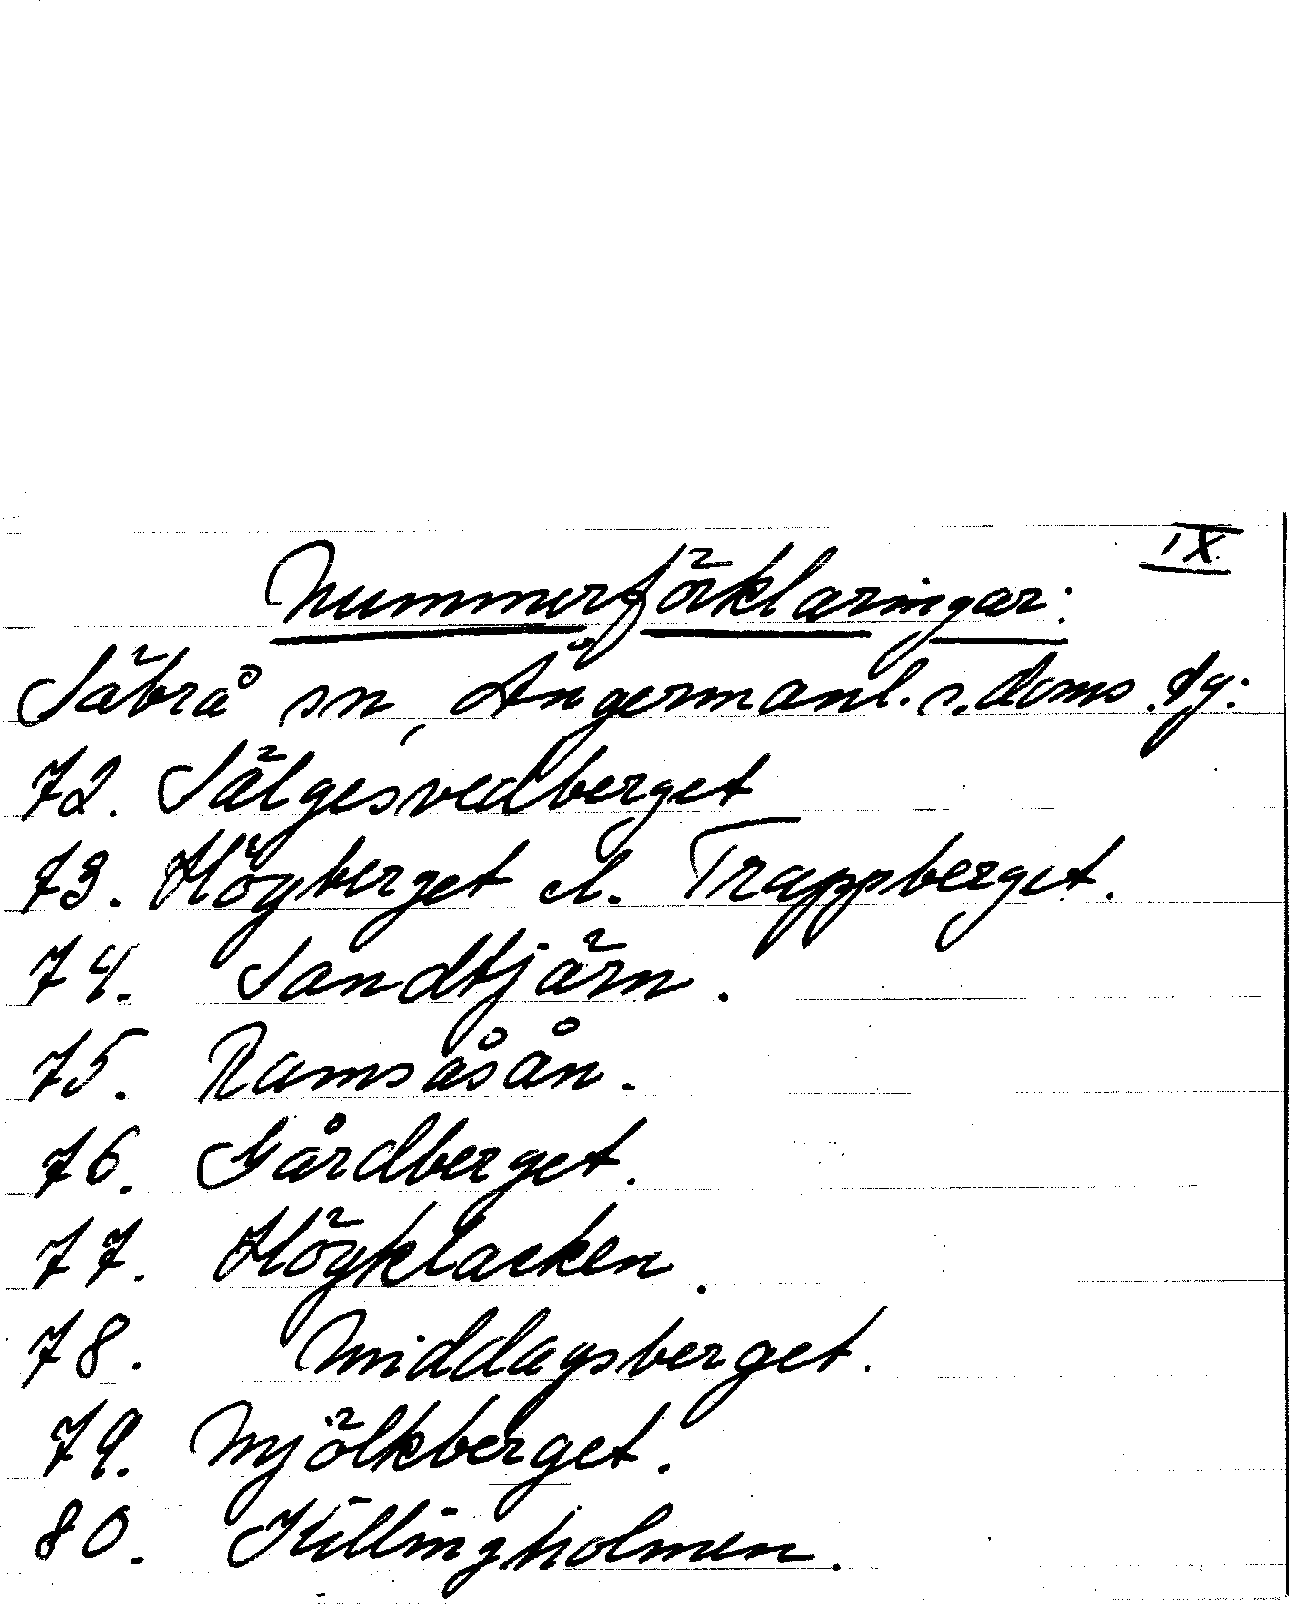 IX.
Nummerförklaringar:
Säbrå sn, Ångermanl. s. doms. sg:
72. Sälgesvedberget
73. Högberget el. Trappberget.
74. Sandtjärn.
75. Ramsåsån.
76. Gårdberget.
77. Högklacken.
78. Middagsberget.
79. Mjölkberget.
80. Killingholmen.